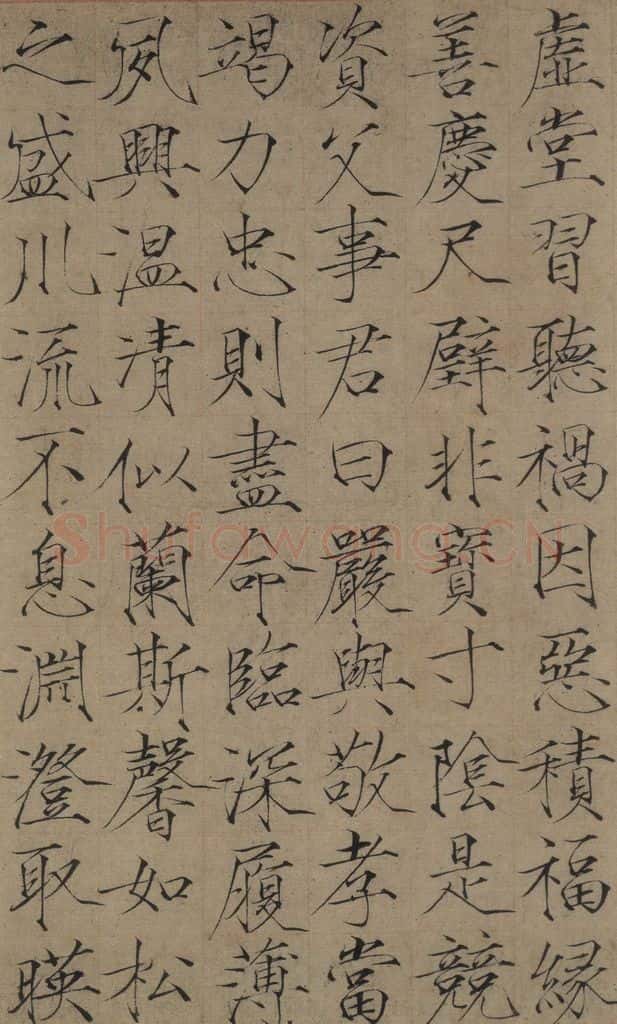 虛堂習聽禍因惡積福緣
善慶尺璧非寶寸陰是競
資父事君曰嚴與敬孝當
竭力忠則盡命臨深履薄
夙興温凊似蘭斯馨如松
之盛川流不息淵澄取暎
Shufawang.CN